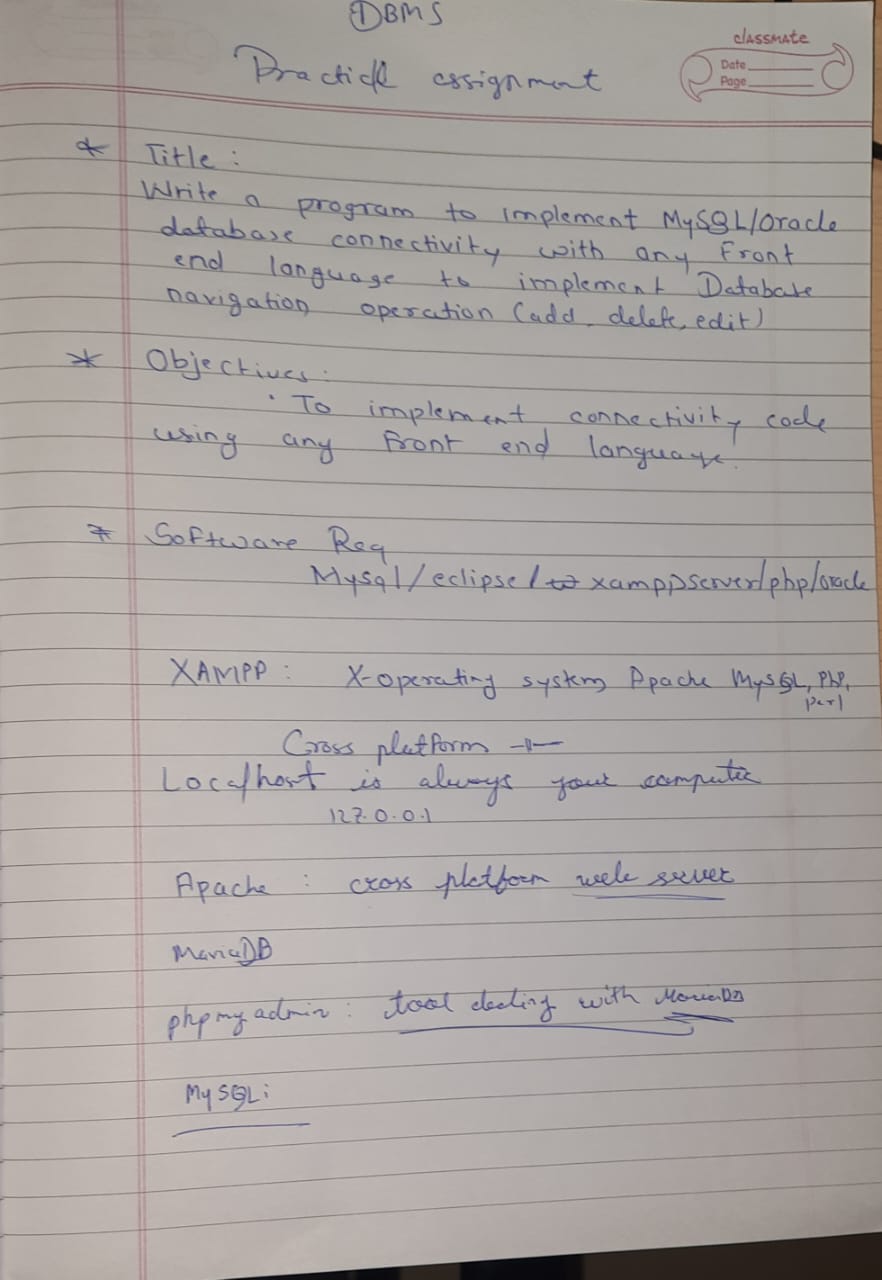 DBMS
Practicle assignment
classmate
Date
Page
* Title :
Write a program to implement MySQL/Oracle
database connectivity with any Front
end language to implement Database
navigation operation (add, delete, edit)
* Objectives :
· To implement connectivity code
using any Front end language.
* Software Req
Mysql/eclipse/ xamppserver/php/oracle
XAMPP : X-operating system Apache MySQL, PhP,
perl
Cross platform -||-
Localhost is always your computer
127.0.0.1
Apache : cross platform web server
MariaDB
phpmyadmin : tool dealing with MariaDB
MySQLi